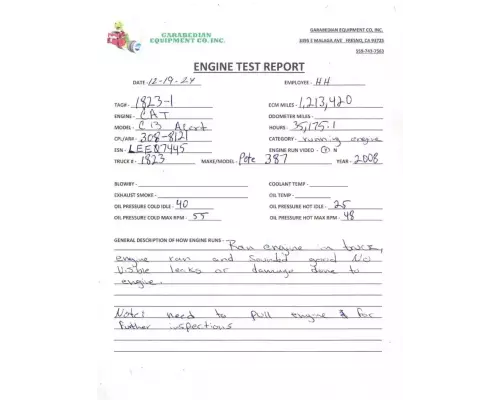 GARABEDIAN
EQUIPMENT CO, INC.
GARABEDIAN EQUIPMENT CO, INC.
3395 E MALAGA AVE FRESNO, CA 93725
559-743-7563
ENGINE TEST REPORT
DATE- 12-19-24 EMPLOYEE- HH
TAG#- 1823-1 ECM MILES- 1,213,420
ENGINE- CAT ODOMETER MILES-
MODEL- C13 Acert HOURS- 35,175.1
CPL/AR#- 308-8121 CATEGORY- running engine
ESN- LEE07445 ENGINE RUN VIDEO- Y N
TRUCK #- 1823 MAKE/MODEL- Pete 387 YEAR- 2008
BLOWBY- COOLANT TEMP-
EXHAUST SMOKE- OIL TEMP-
OIL PRESSURE COLD IDLE- 40 OIL PRESSURE HOT IDLE- 25
OIL PRESSURE COLD MAX RPM- 55 OIL PRESSURE HOT MAX RPM- 48
GENERAL DESCRIPTION OF HOW ENGINE RUNS- Ran engine in truck,
engine ran and sounded good No
visible leaks or damage done to
engine.
Note: need to pull engine for
further inspections